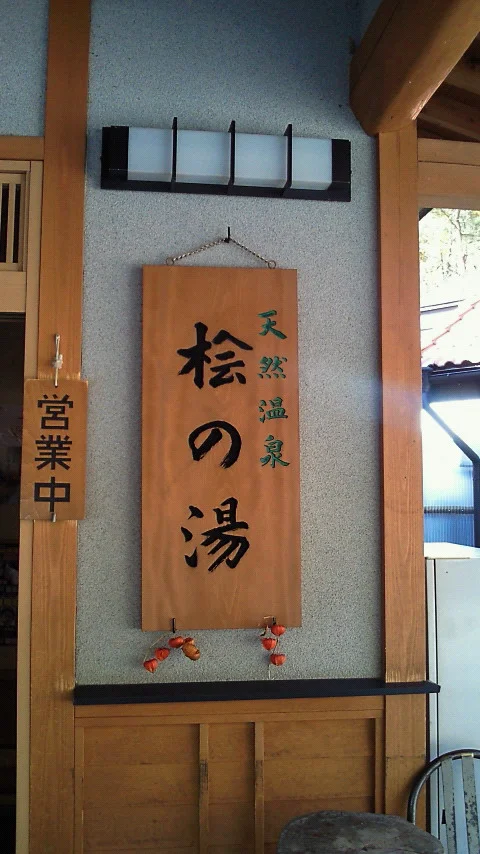 天然温泉
桧の湯
営業中